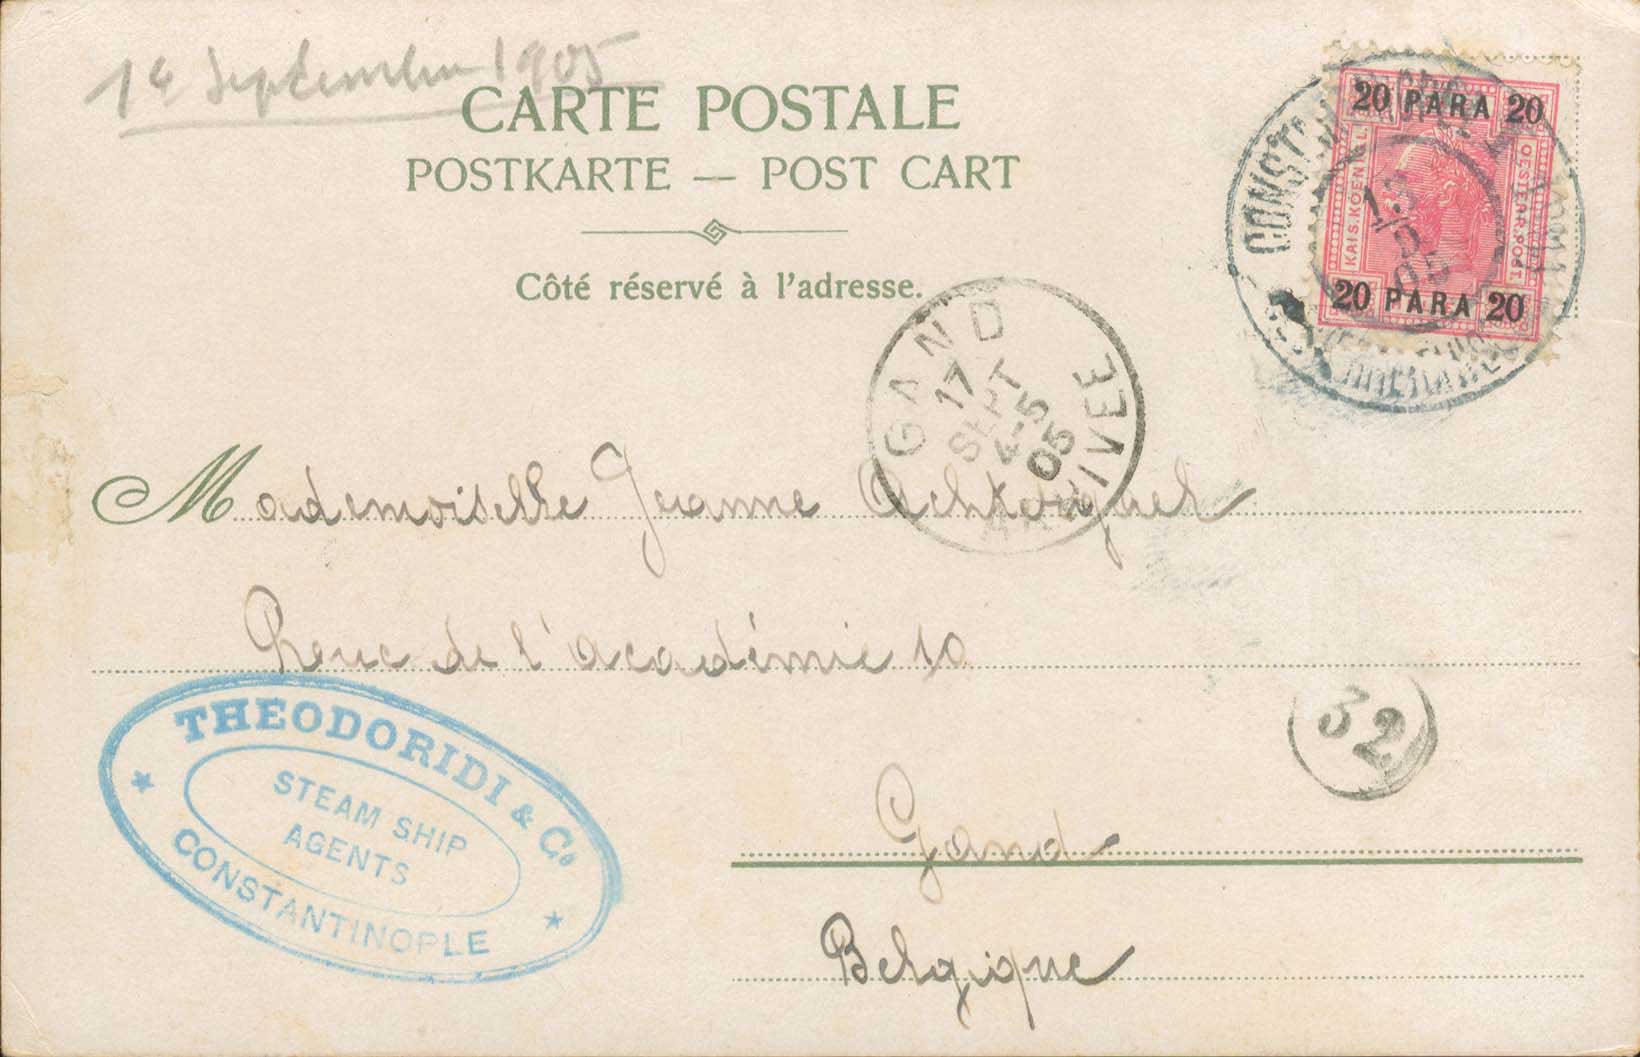 1e Septembre 1905
CARTE POSTALE
POSTKARTE — POST CART
Côté réservé à l'adresse.
20 PARA 20
KAIS. KOENIGL.
OESTERR. POST
20 PARA 20
13
05
GAND
17
SEPT
4-5
05
ARRIVEE
Mademoiselle Jeanne
Rue de l'académie 10
32
Gand
Belgique
THEODORIDI & Co.
STEAM SHIP
AGENTS
CONSTANTINOPLE